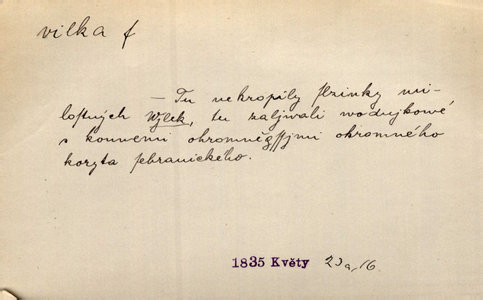 vilka f
— Tu nekropily slzinky mi-
lostných Wylek, tu zaljwali wodnjkowé
s konwemi ohromněgssjmi ohromného
koryta žebranického.
1835 Květy 23a, 16.